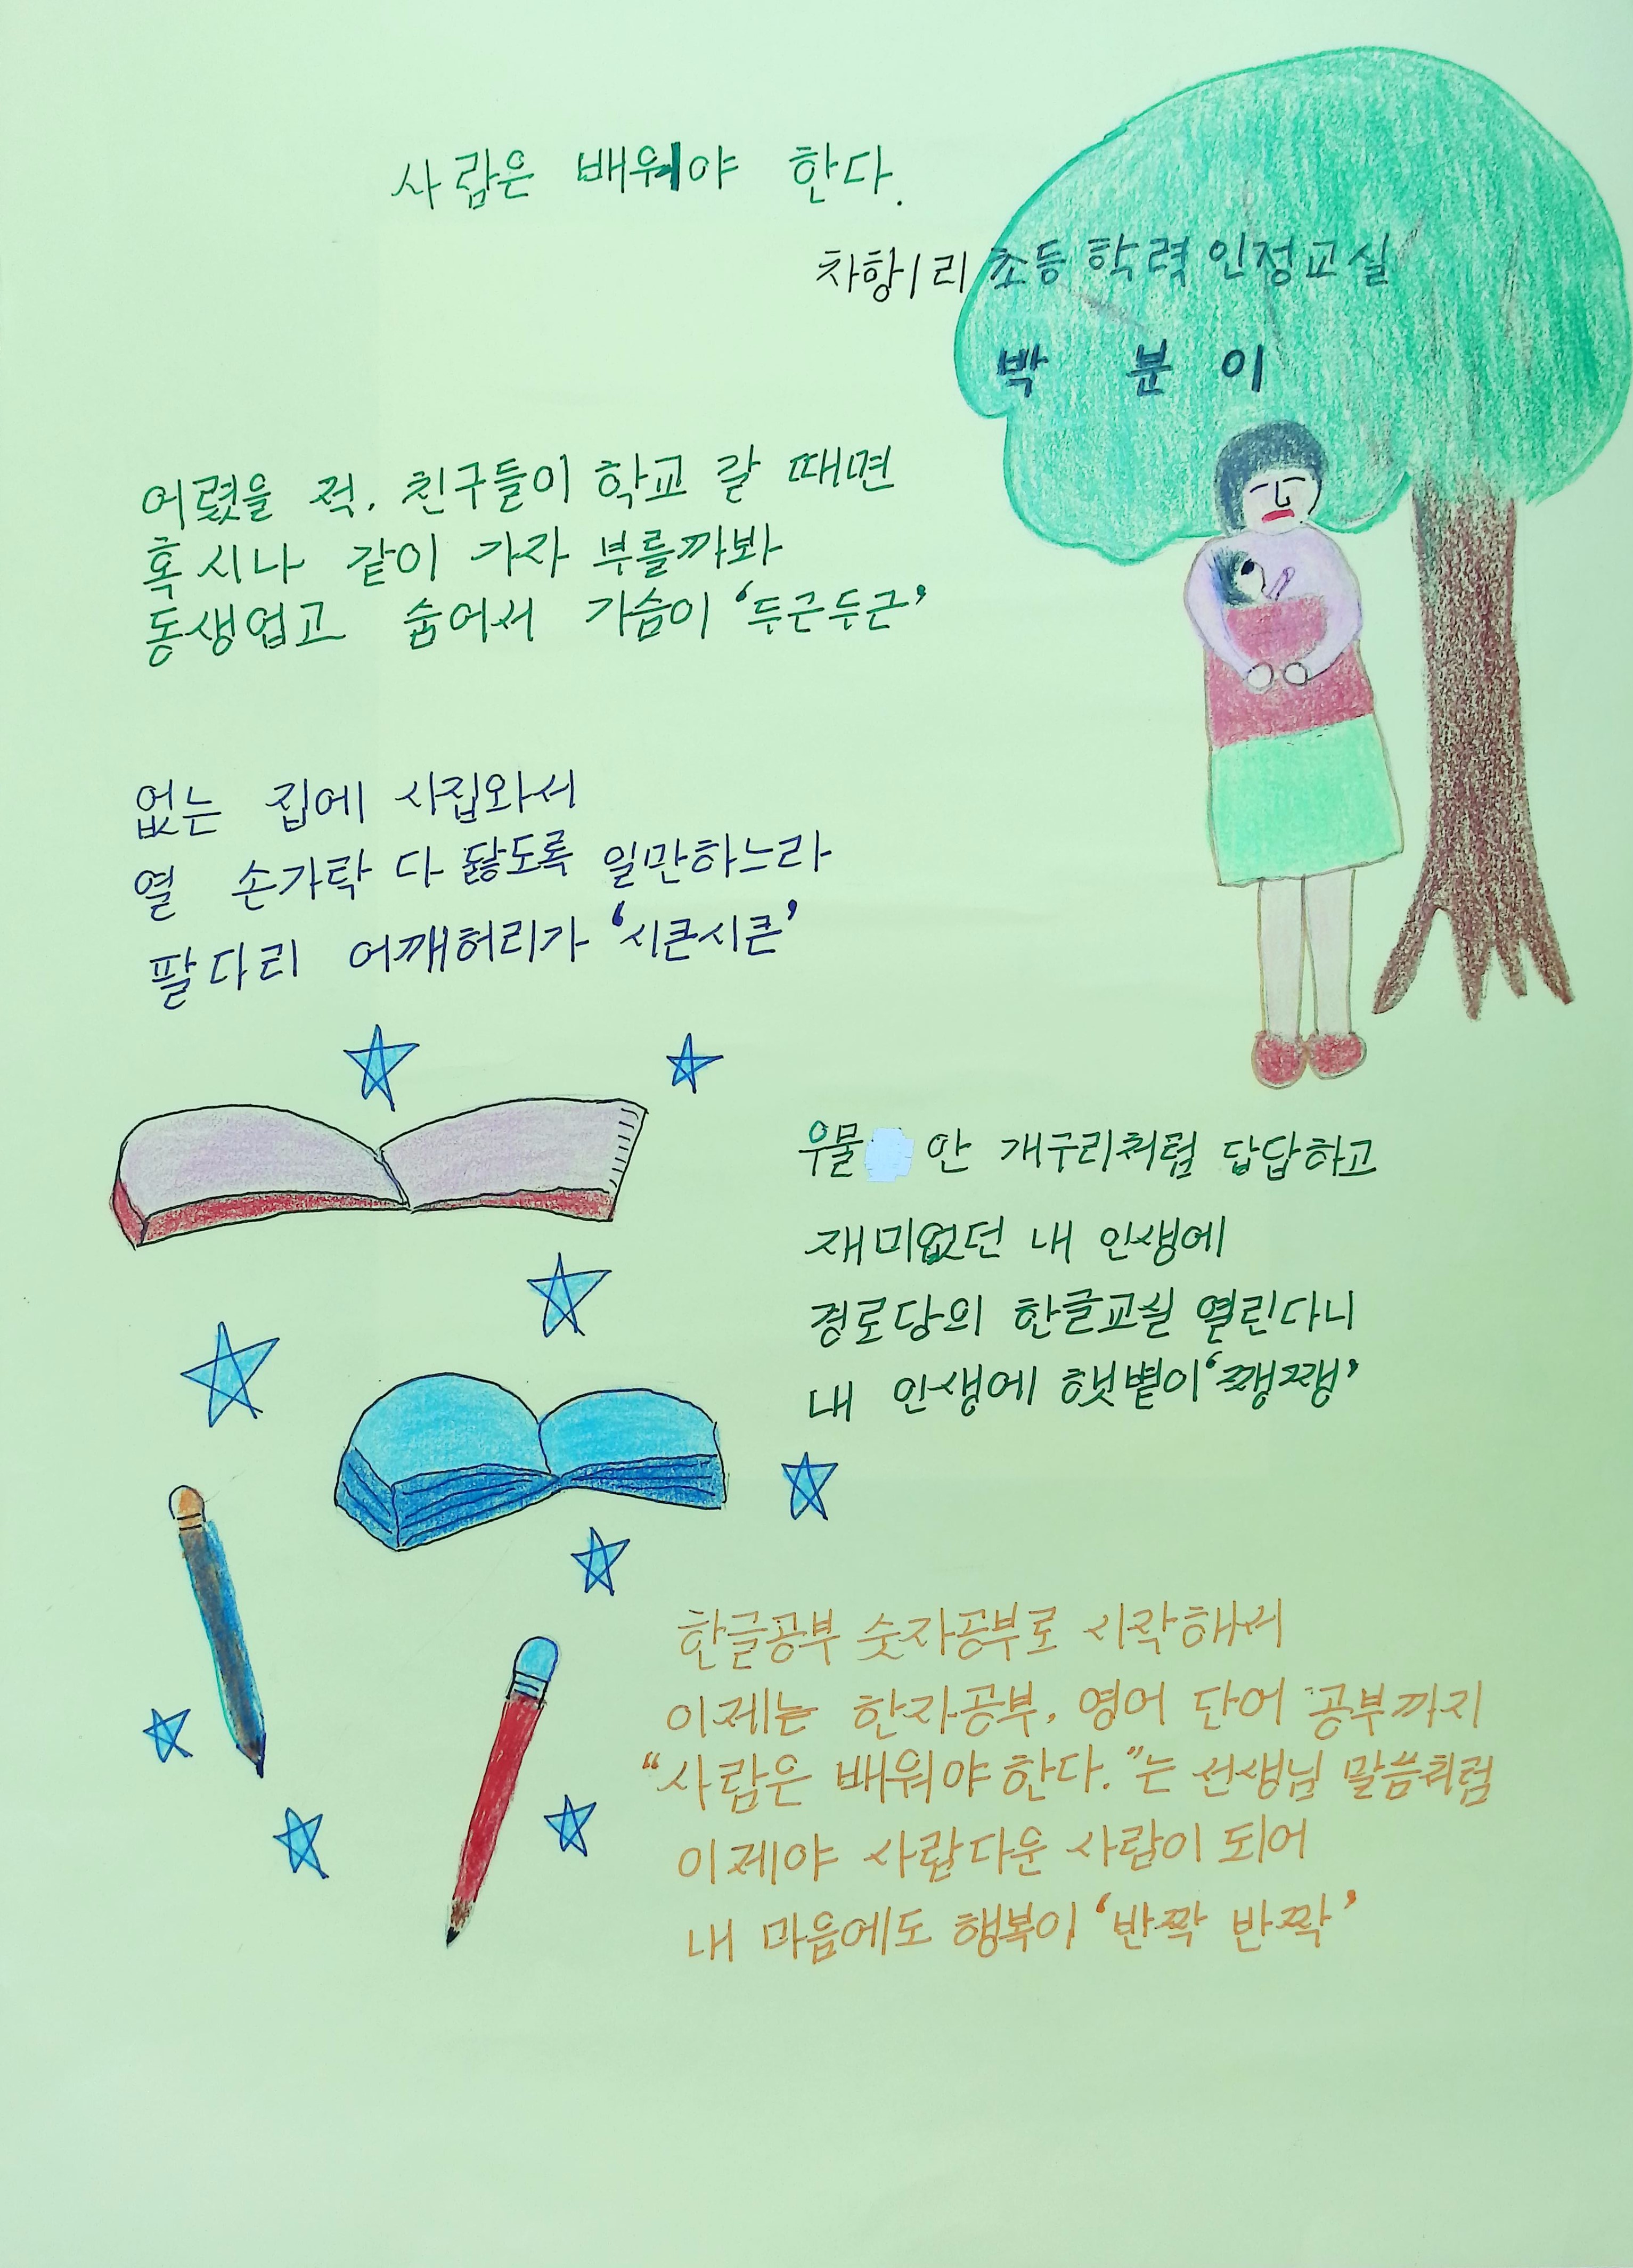 사람은 배워야 한다.
차항1리 초등학력인정교실
박 분 이
어렸을 적, 친구들이 학교 갈 때면
혹시나 같이 가자 부를까봐
동생업고 숨어서 가슴이 '두근두근'
없는 집에 시집와서
열 손가락 다 닳도록 일만하느라
팔다리 어깨허리가 '시큰시큰'
우물 안 개구리처럼 답답하고
재미없던 내 인생에
경로당의 한글교실 열린다니
내 인생에 햇볕이 '쨍쨍'
한글공부 숫자공부로 시작해서
이제는 한자공부, 영어 단어 공부까지
"사람은 배워야 한다."는 선생님 말씀처럼
이제야 사람다운 사람이 되어
내 마음에도 행복이 '반짝 반짝'